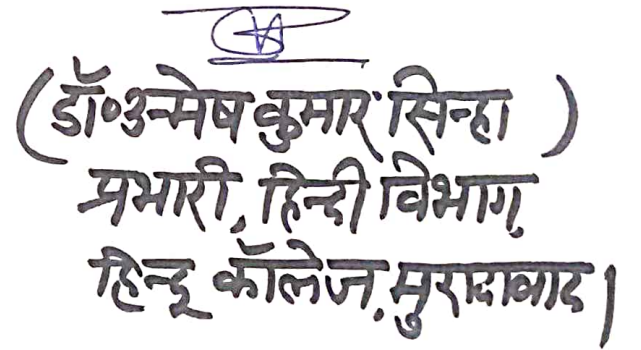 (डॉ॰उन्मेष कुमार सिन्हा)
प्रभारी, हिन्दी विभाग,
हिन्दू कॉलेज, मुरादाबाद।